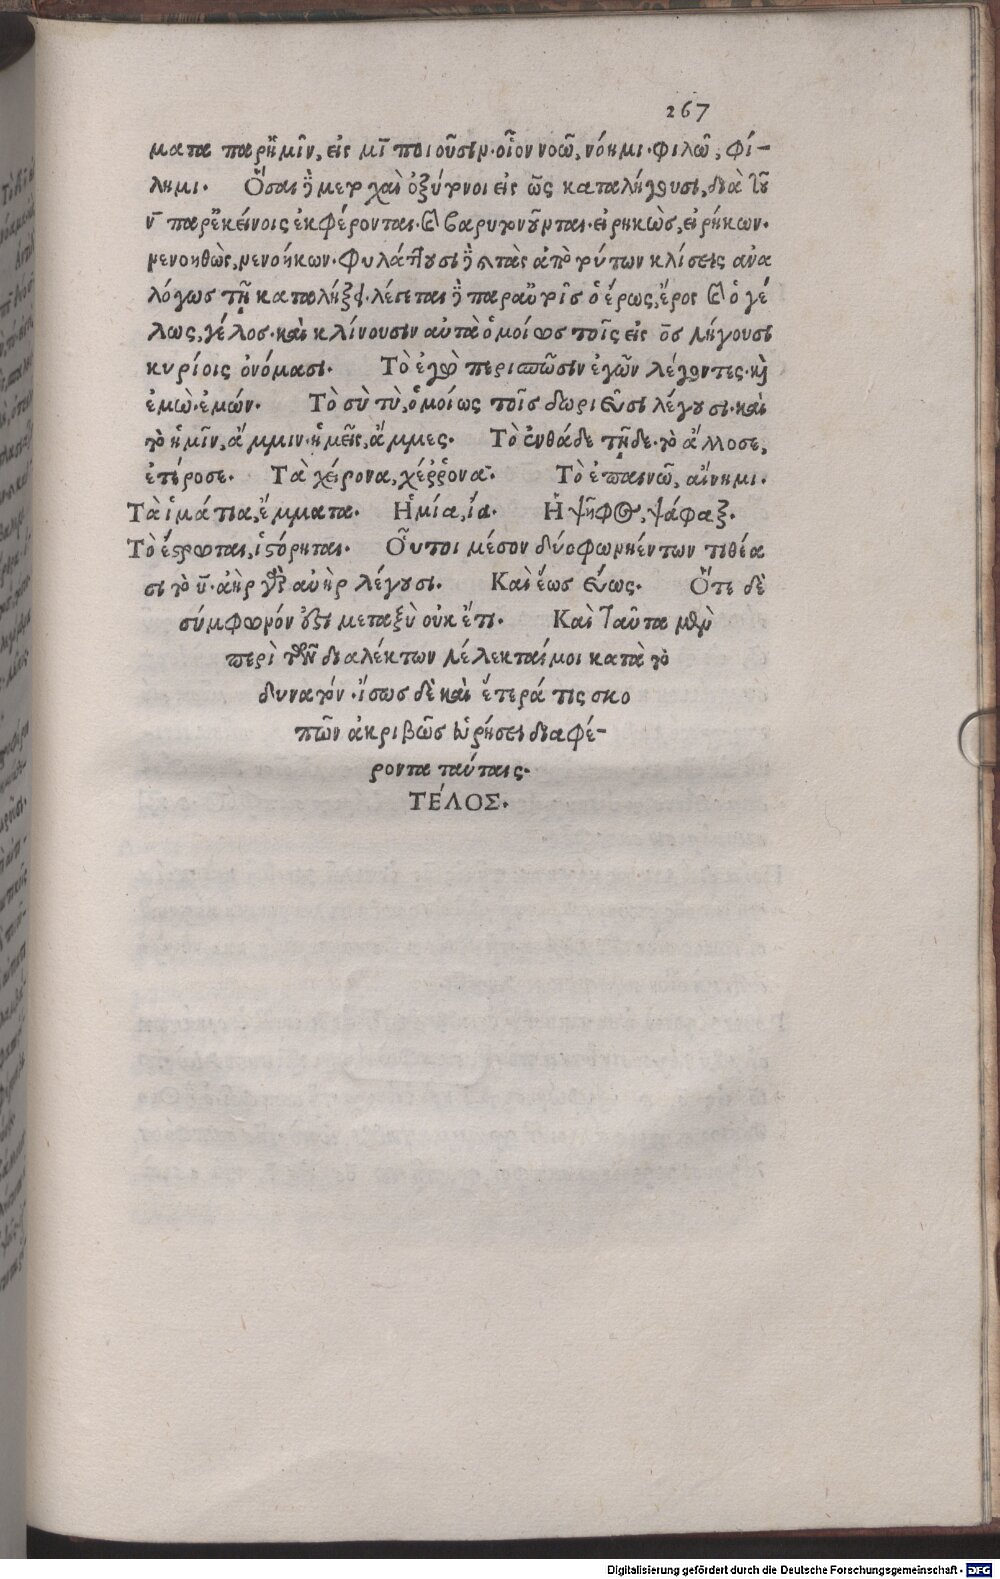 267
ματα παρ' ἡμῖν, εἰς μῑ ποιοῦσιν. οἷον νοῶ, νόημι. φιλῶ, φί-
λημι. Ὅσαι δὲ μετοχαὶ ὀξύτονοι εἰς ὼς καταλήγουσι, διὰ τοῦ
ν̄ παρ' ἐκείνοις ἐκφέρονται. καὶ βαρυτονοῦνται. εἰρηκὼς, εἰρήκων.
νενοηκὼς, νενοήκων. φυλάττουσι δὲ καὶ τὰς ἀπὸ τούτων κλίσεις ἀνα
λόγως τῇ καταλήξει. λέγεται δὲ παρ' αὐτοῖς ὁ ἔρως, ἔρος καὶ ὁ γέ
λως, γέλος. καὶ κλίνουσιν αὐτὰ ὁμοίως τοῖς εἰς ος λήγουσι
κυρίοις ὀνόμασι. Τὸ ἐγὼ περισπῶσιν ἐγῶν λέγοντες. καὶ
ἐμὼ. ἐμών. Τὸ σὺ τὺ, ὁμοίως τοῖς δωριεῦσι λέγουσι. καὶ
τὸ ἡμῖν, ἄμμιν. ἡμεῖς, ἄμμες. Τὸ ἐνθάδε τῇδε. τὸ ἄλλοσε,
ἑτέροσε. Τὰ χείρονα, χέῤῥονα. Τὸ ἐπαινῶ, αἴνημι.
Τὰ ἱμάτια, ἔμματα. Ἡ μία, ἴα. Ἡ ψῆφος, ψάφαξ.
Τὸ ἔρωται, ἱστόρηται. Οὗτοι μέσον δύο φωνηέντων τιθέα
σι τὸ ῡ. ἀὴρ γὰρ αὐὴρ λέγουσι. Καὶ ἕως εὕως. Ὅτε δὲ
σύμφωνόν ἐστι μεταξὺ οὐκ ἔτι. Καὶ ταῦτα μὲν
περὶ τῶν διαλέκτων λέλεκταί μοι κατὰ τὸ
δυνατόν. ἴσως δὲ καὶ ἕτερά τις σκο
πῶν ἀκριβῶς εὑρήσει διαφέ-
ροντα ταύταις.
ΤΕΛΟΣ.
Digitalisierung gefördert durch die Deutsche Forschungsgemeinschaft - DFG